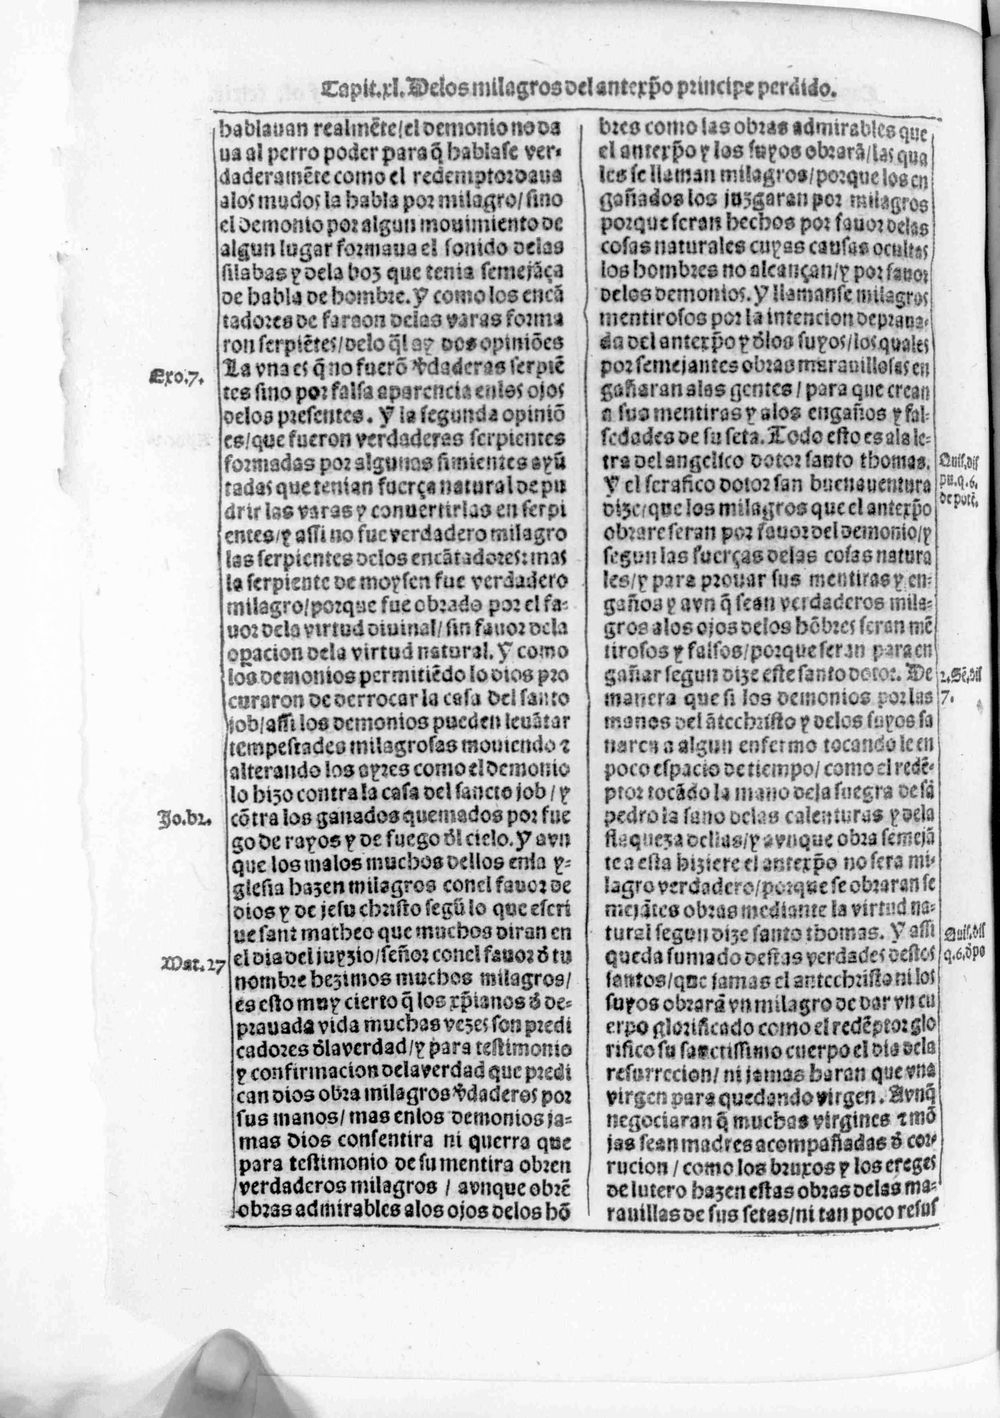 Capit.xl. Delos milagros del antexp̃o principe perdido.
hablauan realmẽte/el demonio no da
ua al perro poder para q̃ hablase ver-
daderamẽte como el redemptor daua
alos mudos la habla por milagro/sino
el demonio por algun mouimiento de
algun lugar formaua el sonido delas
silabas y dela boz que tenia semejãça
de habla de hombre. Y como los encã
tadores de faraon delas varas forma
ron serpiẽtes/delo q̃l ay dos opiniões
La vna es q̃ no fuerõ ṽdaderas serpiẽ
tes sino por falsa aparencia enlos ojos
delos presentes. Y la segunda opiniõ
es/que fueron verdaderas serpientes
formadas por algunas simientes ayũ
tadas que tenian fuerça natural de pu
drir las varas y conuertirlas en serpi
entes/y assi no fue verdadero milagro
las serpientes delos encãtadores: mas
la serpiente de moysen fue verdadero
milagro/porque fue obrado por el fa-
uor dela virtud diuinal/sin fauor dela
opacion dela virtud natural. Y como
los demonios permitiẽdo lo dios pro
curaron de derrocar la casa del santo
job/assi los demonios pueden leuãtar
tempestades milagrosas mouiendo ⁊
alterando los ayres como el demonio
lo hizo contra la casa del sancto job/y
cõtra los ganados quemados por fue
go de rayos y de fuego d̃l cielo. Y avn
que los malos muchos dellos enla y-
glesia hazen milagros conel fauor de
dios y de jesu christo segũ lo que escri
ue sant matheo que muchos diran en
el dia del juyzio/señor conel fauor d̃ tu
nombre hezimos muchos milagros/
es esto muy cierto q̃ los xp̃ianos d̃ de-
prauada vida muchas vezes son predi
cadores d̃la verdad/y para testimonio
y confirmacion dela verdad que predi
can dios obra milagros ṽdaderos por
sus manos/mas enlos demonios ja-
mas dios consentira ni querra que
para testimonio de su mentira obren
verdaderos milagros/avnque obrẽ
obras admirables alos ojos delos hõ
Exo.7.
Jo.br.
Mat.27
bres como las obras admirables que
el antexp̃o y los suyos obrarã/las qua
les se llaman milagros/porque los en
gañados los juzgaran por milagros
porque seran hechos por fauor delas
cosas naturales cuyas causas ocultas
los hombres no alcançan/y por fauor
delos demonios. Y llamanse milagros
mentirosos por la intencion deprava-
da del antexp̃o y d̃los suyos/los quales
por semejantes obras marauillosas en
gañaran alas gentes/para que crean
a sus mentiras y alos engaños y fal-
sedades de su seta. Todo esto es ala le-
tra del angelico dotor santo thomas.
Y el serafico dotor san buenauentura
dize/que los milagros que el antexp̃o
obrare seran por fauor del demonio/y
segun las fuerças delas cosas natura
les/y para prouar sus mentiras y en-
gaños y avn q̃ sean verdaderos mila-
gros alos ojos delos hõbres seran mẽ
tirosos y falsos/porque seran para en
gañar segun dize este santo dotor. De
manera que si los demonios por las
manos del ãtechristo y delos suyos sa
naren a algun enfermo tocando le en
poco espacio de tiempo/como el redẽ-
ptor tocãdo la mano dela suegra de sã
pedro la sano delas calenturas y dela
flaqueza dellas/y avnque obra semejã
te a esta hiziere el antexp̃o no sera mi-
lagro verdadero/porque se obraran se
mejãtes obras mediante la virtud na-
tural segun dize santo thomas. Y assi
queda sumado destas verdades destos
santos/que jamas el antechristo ni los
suyos obrarã vn milagro de dar vn cu
erpo glorificado como el redẽptor glo
rifico su sanctissimo cuerpo el dia dela
resurrecion/ni jamas haran que vna
virgen para quedando virgen. Avnq̃
negociaran q̃ muchas virgines ⁊ mõ
jas sean madres acompañadas d̃ cor-
rucion/como los bruxos y los ereges
de lutero hazen estas obras delas ma-
rauillas de sus setas/ni tan poco resus
Quis.dis
pu.q.6.
de potẽ.
2.Sẽ.dis
7.
Quis.dis
q.6.d̃po